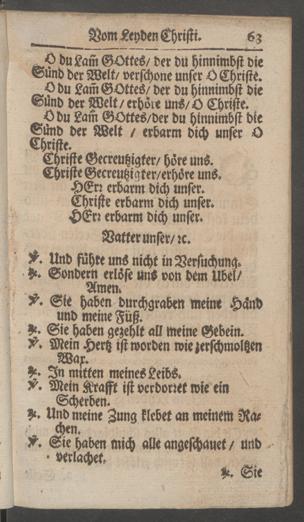 Vom Leyden Christi. 63
O du Lam̃ GOttes/ der du hinnimbst die
Sünd der Welt/ verschone unser O Christe.
O du Lam̃ GOttes/ der du hinnimbst die
Sünd der Welt/ erhöre uns/ O Christe.
O du Lam̃ GOttes/der du hinnimbst die
Sünd der Welt / erbarm dich unser O
Christe.
Christe Gecreutzigter/ höre uns.
Christe Gecreutzigter/erhöre uns.
HErr erbarm dich unser.
Christe erbarm dich unser.
HErr erbarm dich unser.
Vatter unser/ ꝛc.
℣. Und führe uns nicht in Versuchung.
℟. Sondern erlöse uns von dem Ubel/
Amen.
℣. Sie haben durchgraben meine Händ
und meine Füß.
℟. Sie haben gezehlt all meine Gebein.
℣. Mein Hertz ist worden wie zerschmoltzen
Wax.
℟. In mitten meines Leibs.
℣. Mein Krafft ist verdorret wie ein
Scherben.
℟. Und meine Zung klebet an meinem Ra-
chen.
℣. Sie haben mich alle angeschauet/ und
verlachet.
℟. Sie